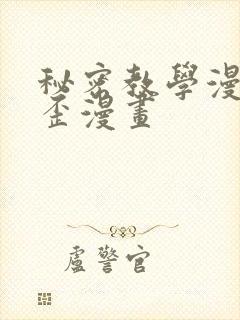 秘密教學漫
歪漫畫
盧警官